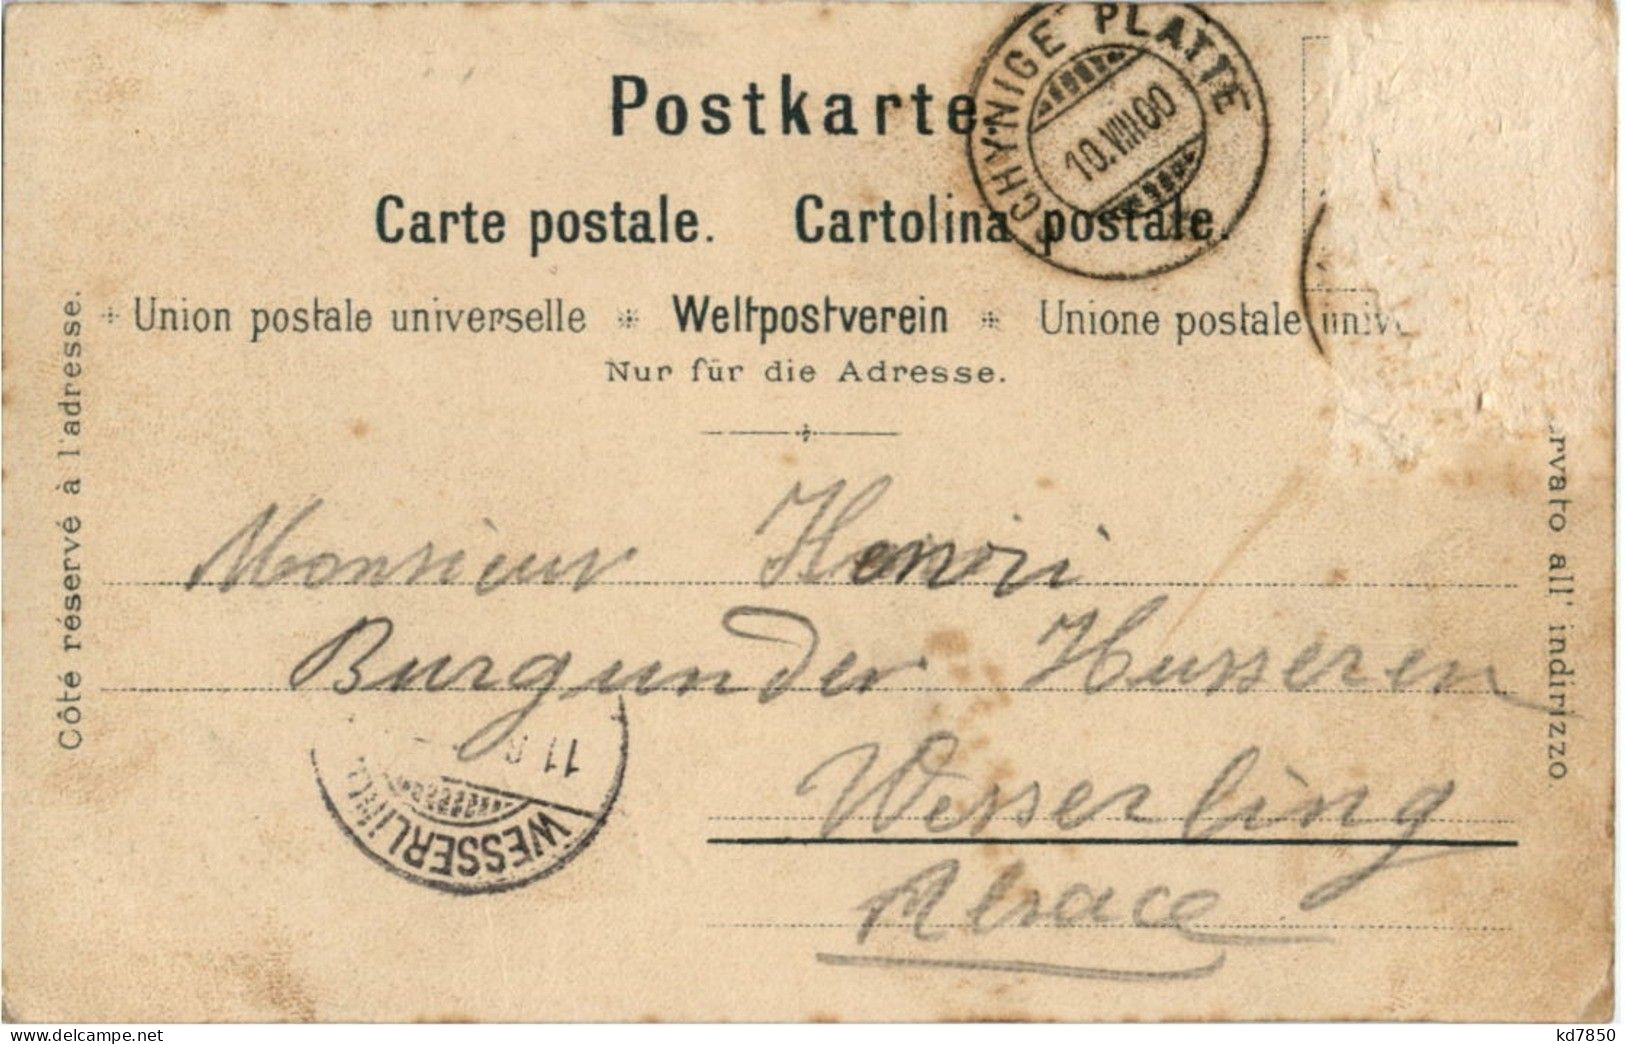 Postkarte.
Carte postale. Cartolina postale.
SCHYNIGE PLATTE
10.VIII.00
Union postale universelle * Weltpostverein * Unione postale
Nur für die Adresse.
Côté réservé à l'adresse.
all' indirizzo.
Monsieur Henri
Burgunder Husseren
Wesserling
Alsace
11
WESSERLING
delcampe.net
kd7850